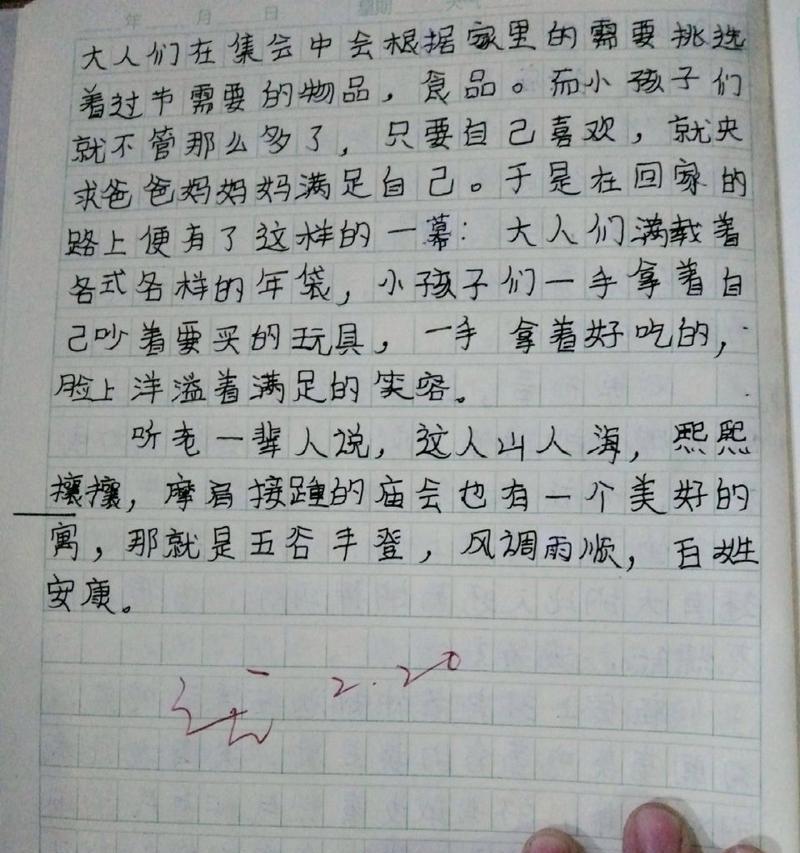 年 月 日 星期 天气
大人们在集会中会根据家里的需要挑选
着过节需要的物品，食品。而小孩子们
就不管那么多了，只要自己喜欢，就央
求爸爸妈妈妈满足自己。于是在回家的
路上便有了这样的一幕：大人们满载着
各式各样的年袋，小孩子们一手拿着自
己吵着要买的玩具，一手拿着好吃的，
脸上洋溢着满足的笑容。
听老一辈人说，这人山人海，熙熙
攘攘，摩肩接踵的庙会也有一个美好的
寓，那就是五谷丰登，风调雨顺，百姓
安康。
2.20